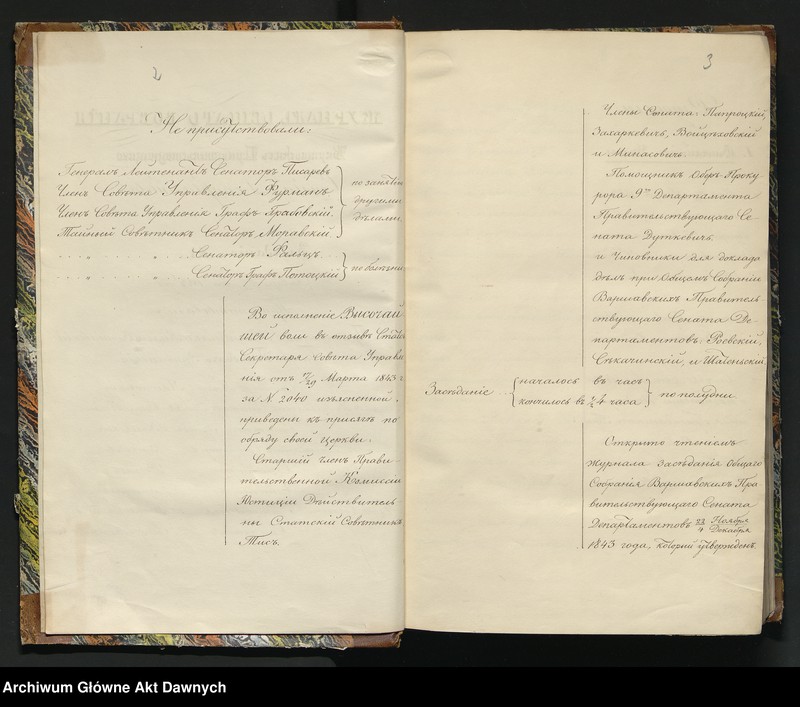 2
Не присутствовали:
Генералъ Лейтенантъ Сенаторъ Писаревъ
Членъ Совѣта Управленія Фурманъ
Членъ Совѣта Управленія Графъ Грабовскій
Тайный Совѣтникъ Сенаторъ Моравскій
по занятію
другими
дѣлами
Сенаторъ
Сенаторъ Графъ Потоцкій
по болѣзни
Во исполненіе Высочай
шей воли въ отзывѣ Статсъ
Секретаря Совѣта Управле
нія отъ 17/29 Марта 1843 г
за N 2040 изъясненной,
приведены къ присягѣ по
обряду своей Церкви.
Старшій членъ Прави-
тельственной Коммисіи
Юстиціи Дѣйствитель
ны Статскій Совѣтникъ
Тисъ.
3
Члены Сената: Папроцкій,
Захаркевичъ, Войцѣховскій
и Минасовичъ.
Помощникъ Оберъ Проку-
рора 9го Департамента
Правительствующаго Се-
ната Дуткевичъ
и Чиновники для доклада
дѣлъ при Общемъ Собраніи
Варшавскихъ Правитель
ствующаго Сената Де-
партаментовъ:
Засѣданіе
началось въ часъ
кончилось въ ½ 4 часа
по полудни
Открыто чтеніемъ
журнала засѣданія Общаго
Собранія Варшавскихъ Пра
вительствующаго Сената
Департаментовъ Ноября
Декабря
1843 года, который утвержденъ.
Archiwum Główne Akt Dawnych